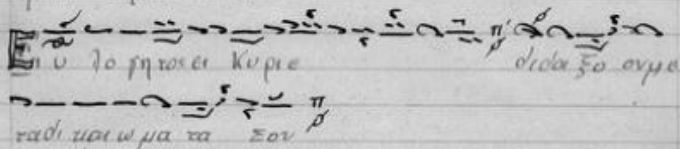 Ευ λο γητος ει Κυριε διδα ξο ον με
τα δι και ω μα τα Σου